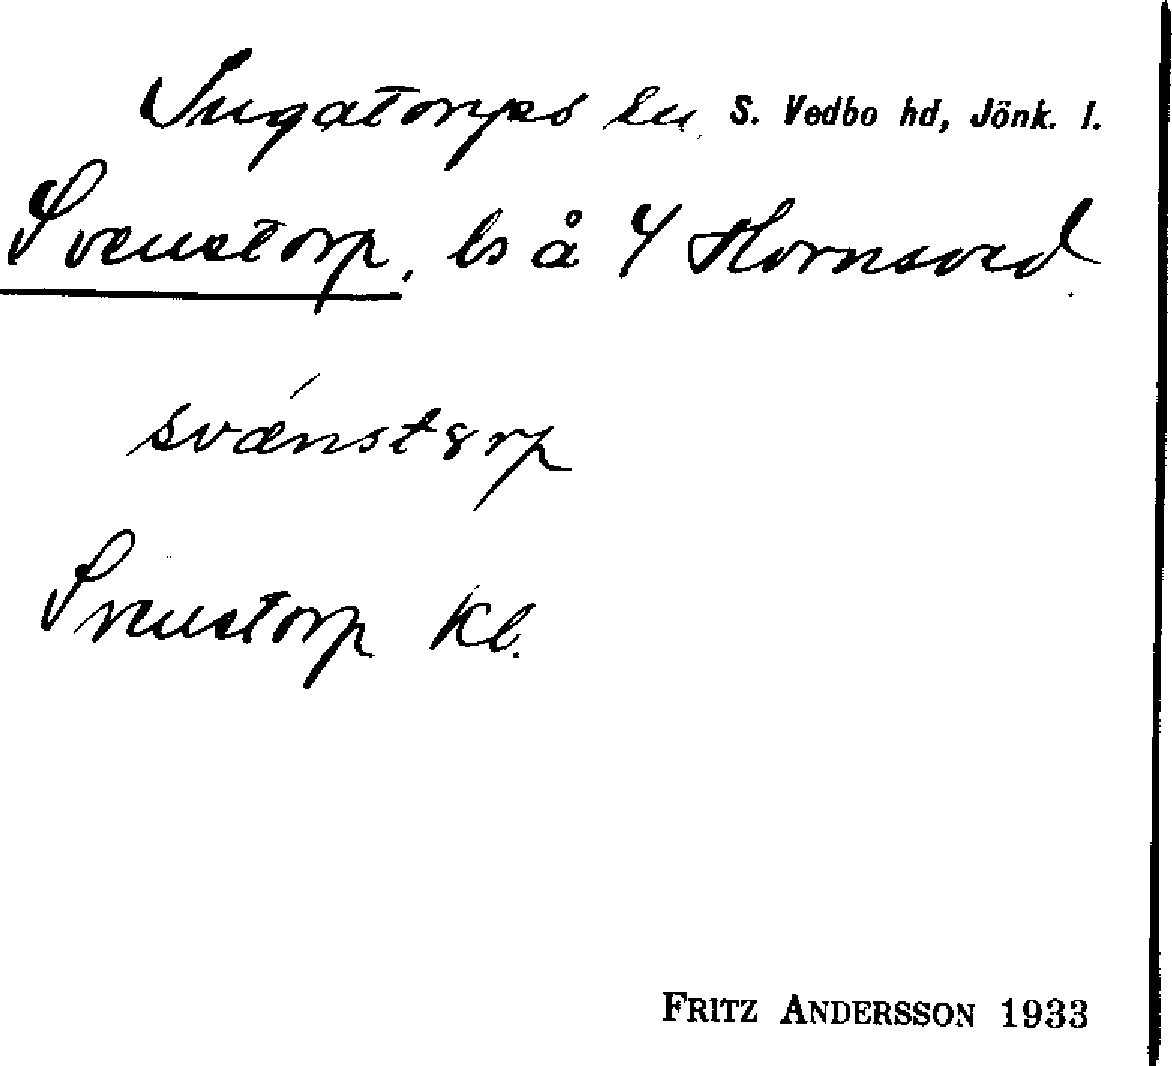 Ingatorps sn S. Vedbo hd, Jönk. l.
Svenstorp, ls å 4 Hornsved
svǽnstɤrp
Svenstorp Kl.
FRITZ ANDERSSON 1933